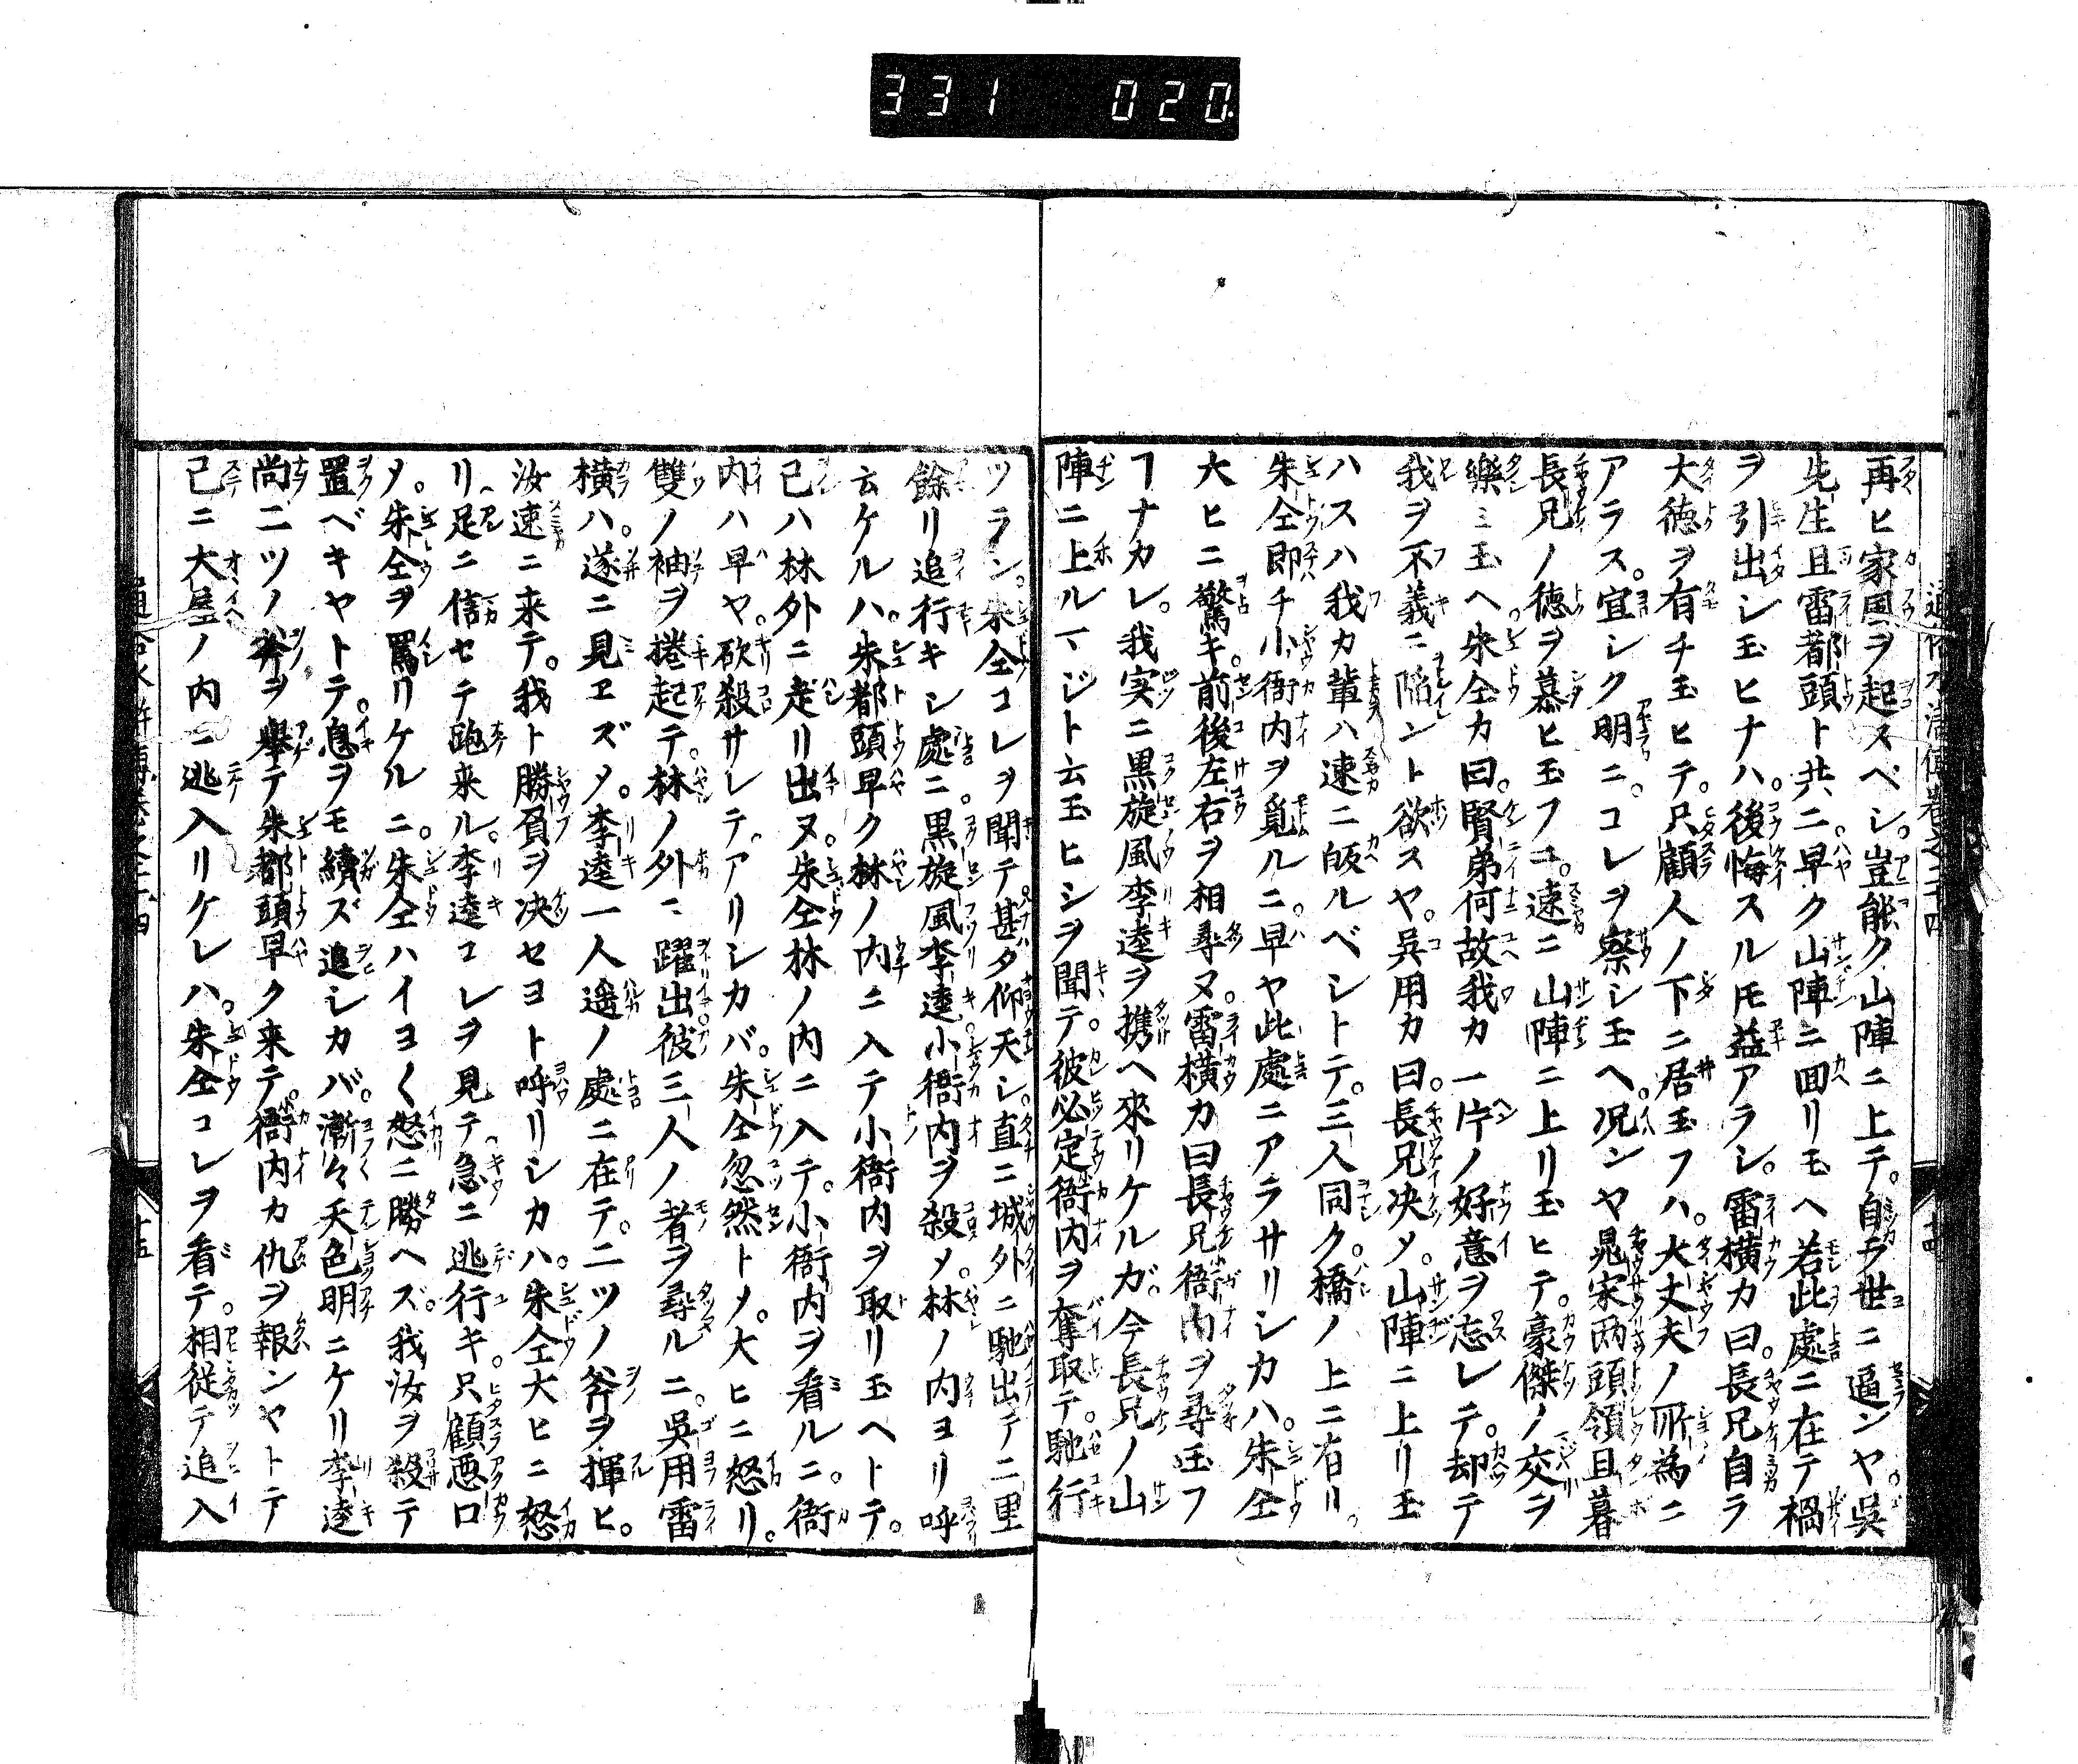 331 020
再ヒ家風ヲ起スベシ。豈能ク山陣ニ上テ。自ラ世ニ逼ンヤ。吳
先生且雷都頭ト共ニ。早ク山陣ニ回リモヘ若此處ニ在テ禍
ヲ引出シ玉ヒナハ。後悔スルモ益アラシ。雷横カ曰。長兄自ラ
大徳ヲ有チ玉ヒテ。只顧人ノ下ニ居玉フハ。大丈夫ノ所為ニ
アラス。宜シク明ニ。コレヲ察シ玉ヘ。况ンヤ晁宋两頭領且暮
長兄ノ徳ヲ慕ヒ玉フヿ。速ニ山陣ニ上リ玉ヒテ。豪傑ノ交ヲ
樂ミ玉ヘ。朱仝カ曰。賢弟何故我カ一片ノ好意ヲ忘レテ。却テ
我ヲ不義ニ陥ント欲スヤ。吳用カ曰。長兄决メ。山陣ニ上リ玉
ハスハ我カ輩ハ速ニ皈ルベシトテ。三人同ク。橋ノ上ニ右リ。
朱仝即チ小衙内ヲ覓ルニ。早ヤ此處ニアラサリシカハ。朱仝
大ヒニ驚キ。前後左右ヲ相尋ヌ。雷横カ曰長兄衙内ヲ尋玉フ
ヿナカレ。我実ニ黒旋風李逵ヲ携ヘ來リケルガ。今長兄ノ山
陣ニ上ルマジト云玉ヒシヲ聞テ。彼必定衙内ヲ奪取テ。馳行
ツラン。朱仝コレヲ聞テ。甚タ仰天シ。直ニ城外ニ馳出テ二里
餘リ追行キシ處ニ。黒旋風李逵小衙内ヲ殺メ。林ノ内ヨリ呼
云ケルハ。朱都頭早ク林ノ内ニ入テ小衙内ヲ取リ玉ヘトテ。
已ハ林外ニ走リ出ヌ。朱仝林ノ内ニ入テ。小衙内ヲ看ルニ。衙
内ハ早ヤ。砍殺サレテアリシカバ。朱仝忽然トメ。大ヒニ怒リ。
雙ノ袖ヲ捲起テ。林ノ外ニ躍出彼三人ノ者ヲ尋ルニ。吳用雷
横ハ。遂ニ見ヱズメ。李逵一人遥ノ處ニ在テ。二ツノ斧ヲ揮ヒ。
汝速ニ来テ。我ト勝負ヲ决セヨト呼リシカハ。朱仝大ヒニ怒
リ足ニ信セテ跑来ル。李逵コレヲ見テ急ニ逃行キ。只顧悪口
メ。朱仝ヲ罵リケルニ。朱仝ハイヨ〱怒ニ勝ヘズ。我汝ヲ殺テ
置ベキヤトテ。息ヲモ續ズ追シカバ。漸々天色明ニケリ李逵
尚二ツノ斧ヲ擧テ朱都頭早ク来テ。衙内カ仇ヲ報ンヤトテ
已ニ大屋ノ内ニ逃入リケレハ。朱仝コレヲ看テ。相従テ追入